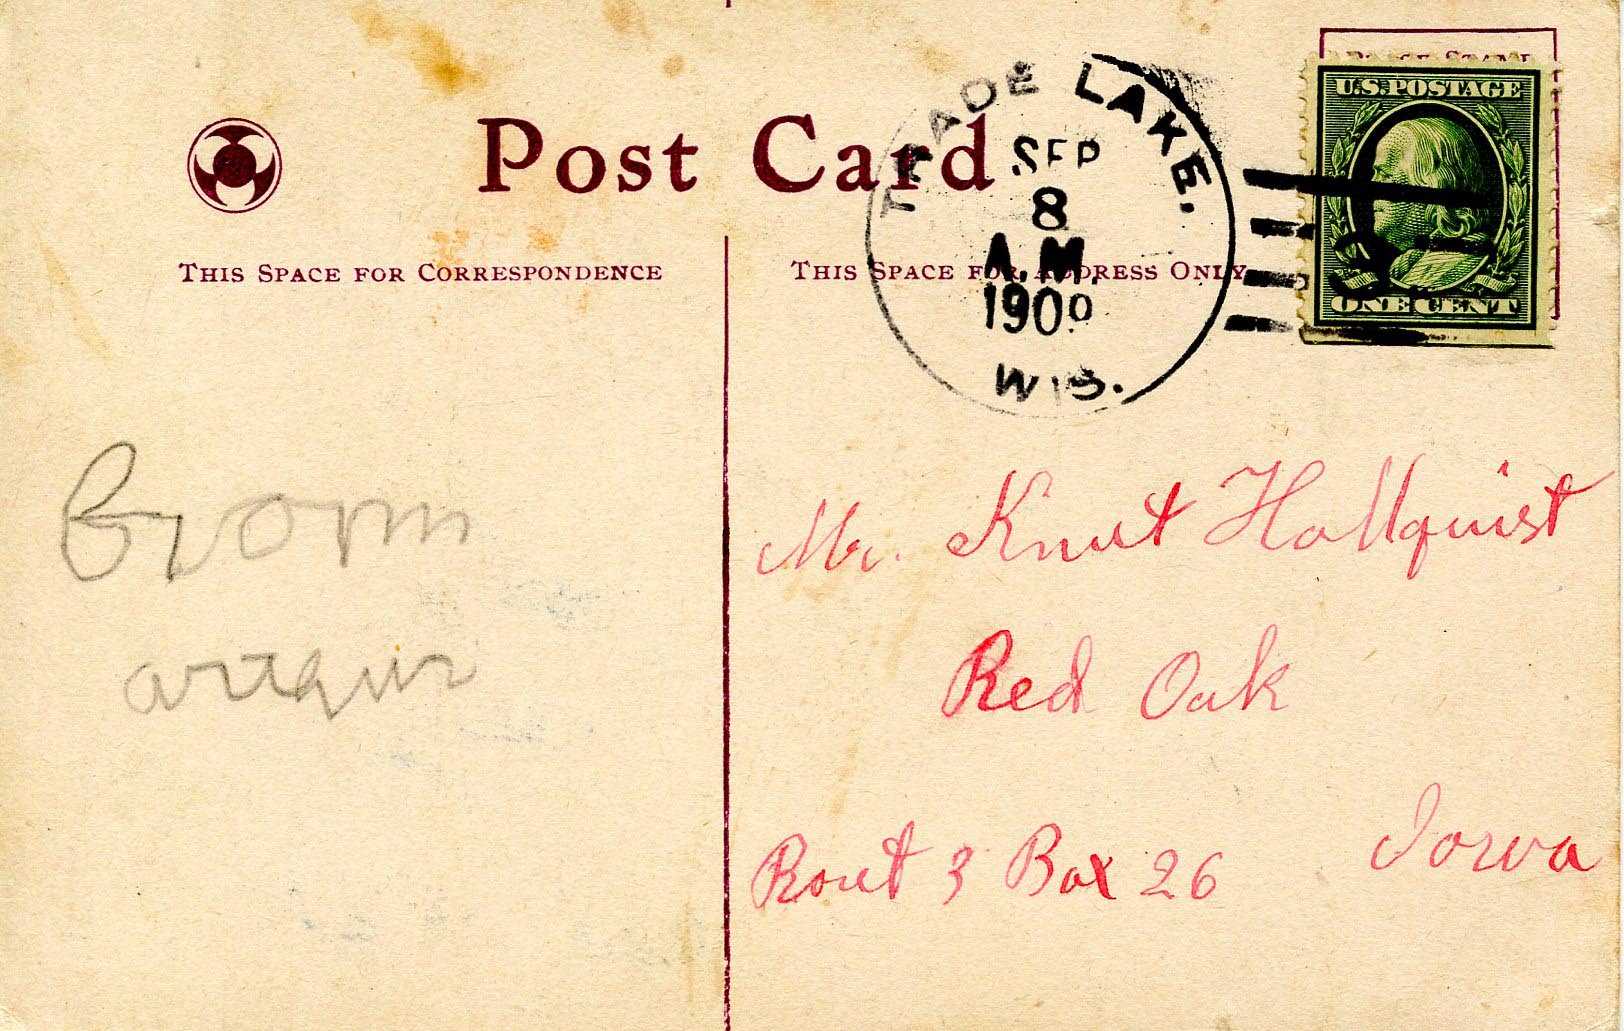 Post Card
THIS SPACE FOR CORRESPONDENCE
THIS SPACE FOR ADDRESS ONLY
TRADE LAKE.
SEP
8
A.M.
1909
WIS.
U.S. POSTAGE
ONE CENT
Mr. Knut Hallquist
Red Oak
Iowa
Rout 3 Box 26
from